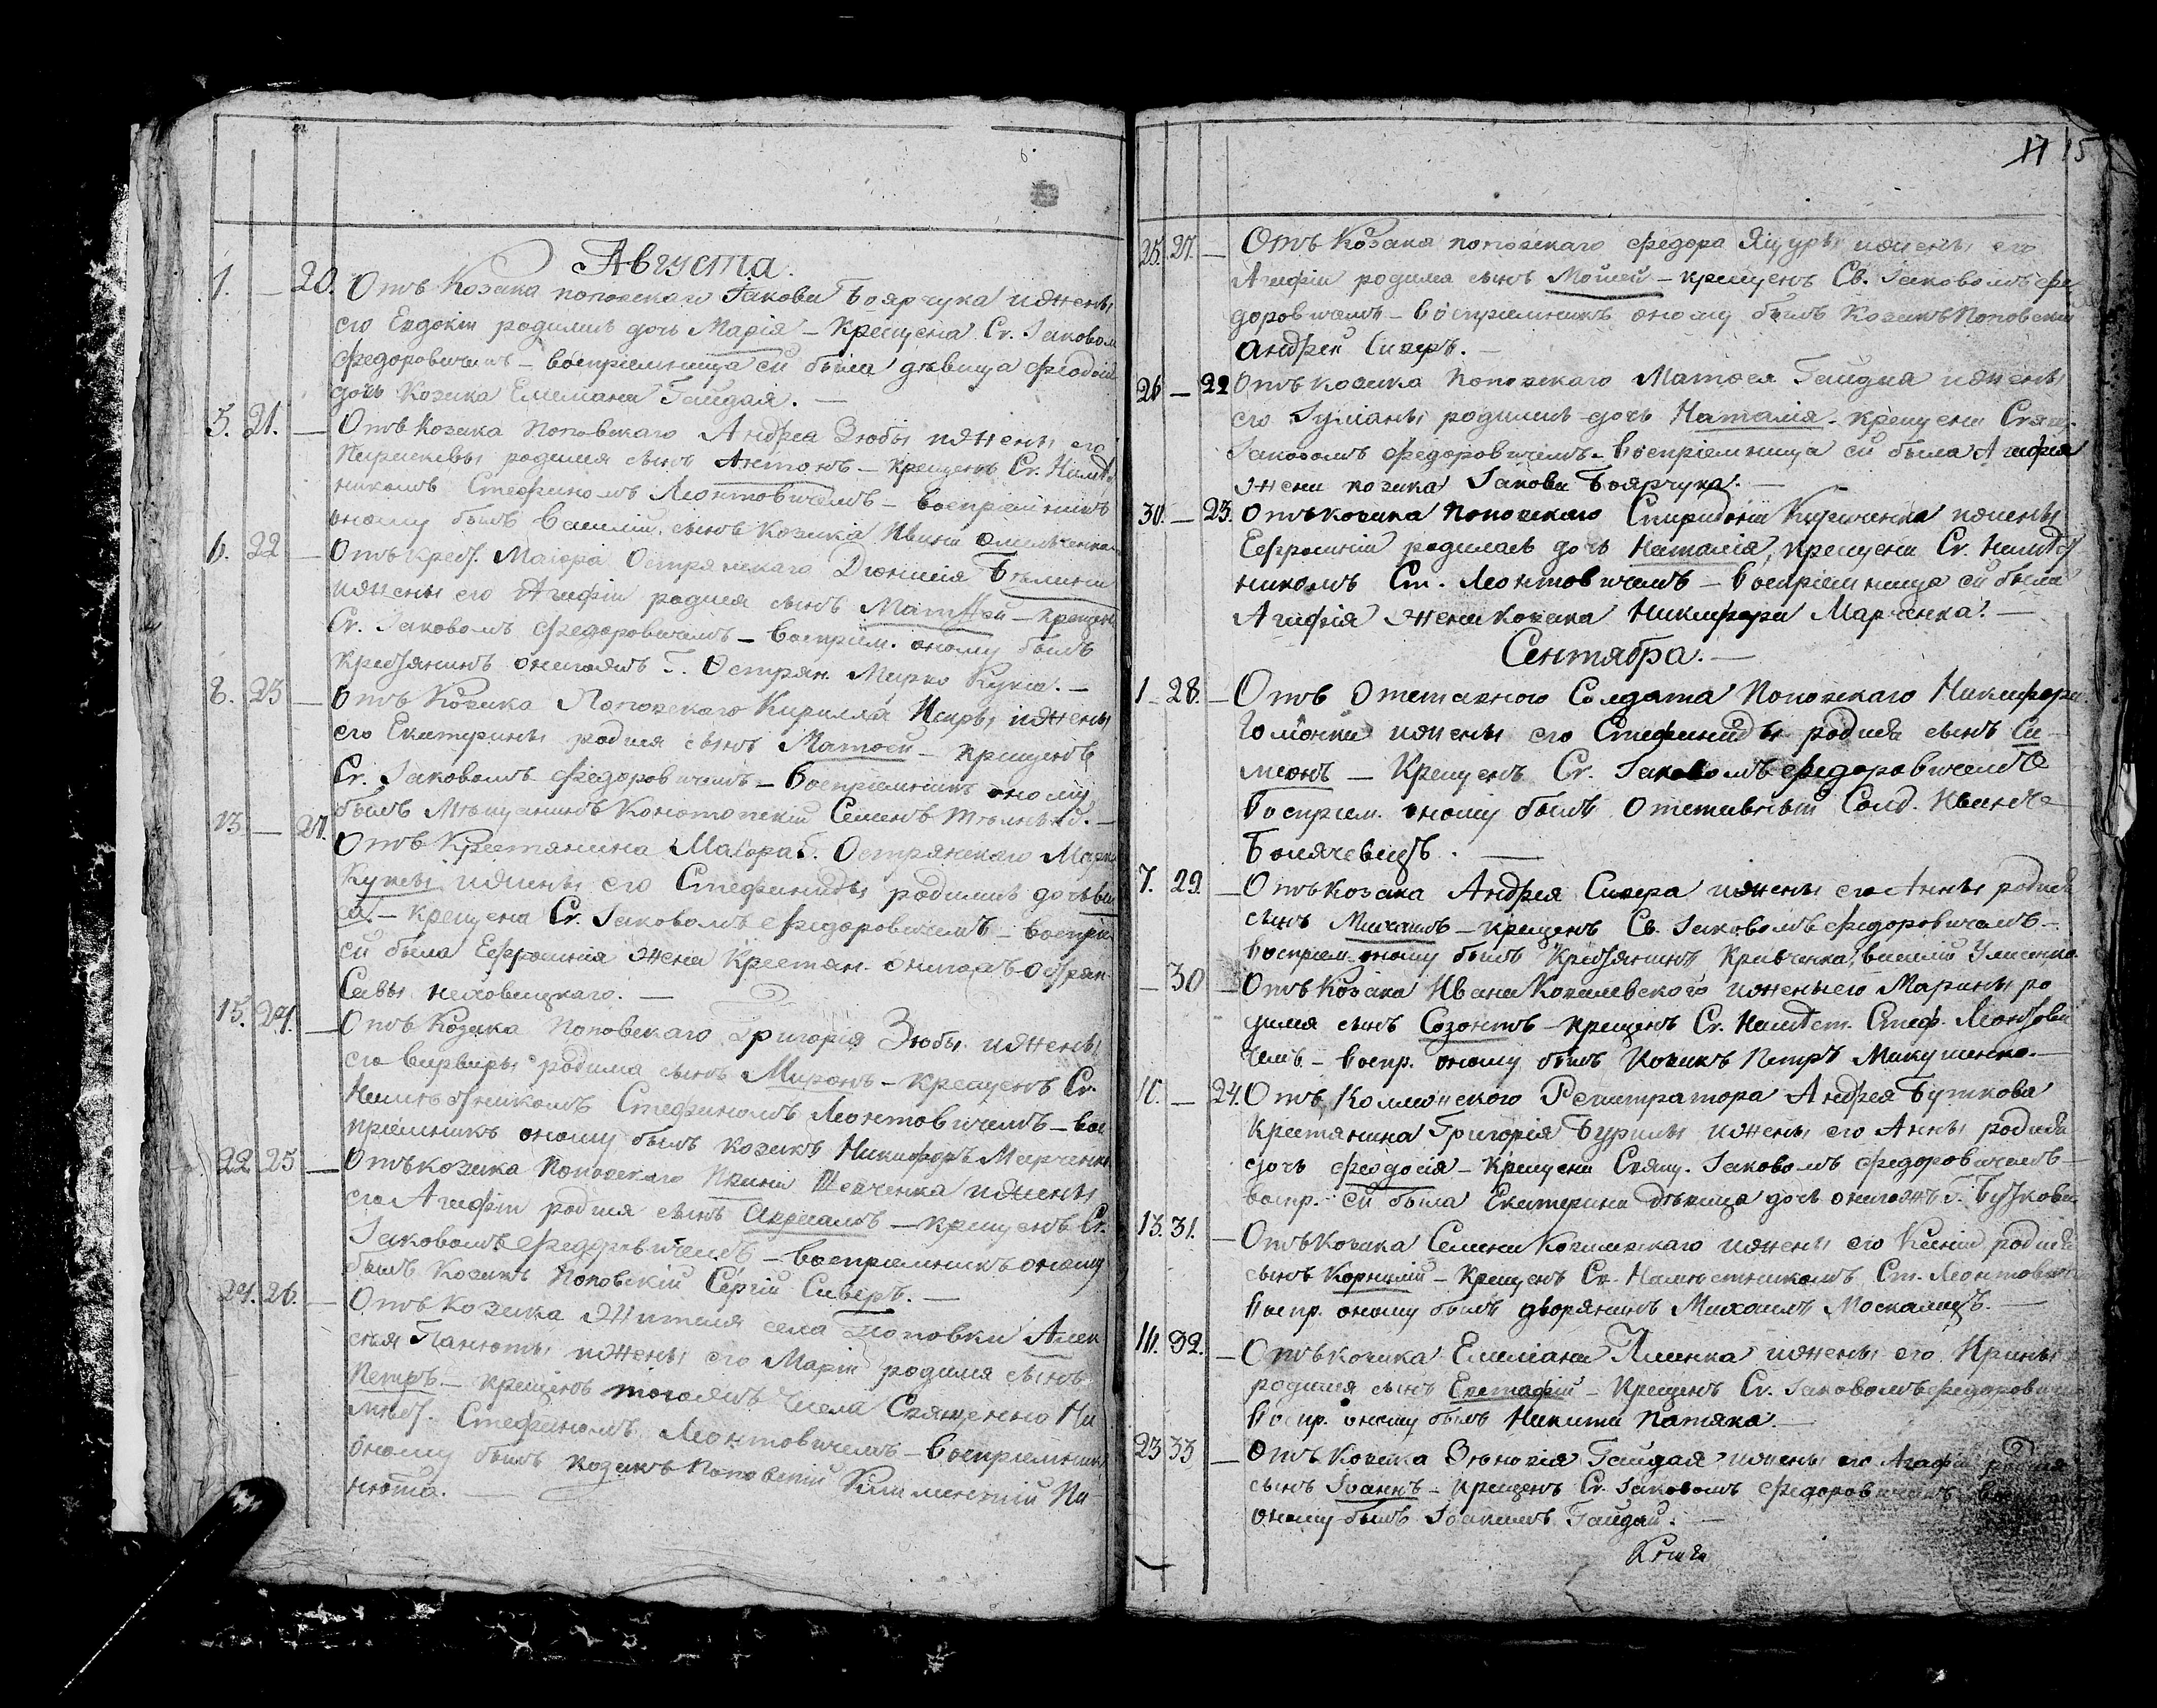 Августа.
1. — 20. Отъ Козака поповскаго Іакова Боярчука и жены
его Евдокіи родилась дочь Марія — крещена Св. Іаковом
Федоровичемъ — воспріемница ей была дѣвица
дочь Козака Емеліана Гайдая. —
5. 21. — Отъ Козака Поповскаго Андрея Зюбы и жены его
Параскевы родился сынъ Антонъ — крещенъ Св. Намѣст
никомъ Стефаномъ Леонтовичемъ — воспріемникъ
оному былъ Василій, сынъ Козака Ивана Омельченка
6. 22 — Отъ крест. Маіора Острянскаго Діонисія
и жены его Агафіи родился сынъ Матѳей — крещенъ
Св. Іаковомъ Федоровичемъ — воспріем. оному былъ
крестянинъ онаго Г. Острян. Марко Кукса. —
8. 23 — Отъ Козака Поповскаго Кирилла и жены
его Екатерины родился сынъ Матѳей — крещенъ
Св. Іаковомъ Федоровичемъ — воспріемникъ оному
былъ Мѣщанинъ Конотопскій Семенъ —
13 — 21. Отъ Крестянина Маіора Г. Острянскаго Марка
Куксы и жены его Стефаниды родилась дочь Ва
са — крещена Св. Іаковомъ Федоровичемъ — воспрі
ей была Ефросинія жена Крестян. Острян
Савы —
15. 24. — Отъ Козака Поповскаго Григорія Зюбы и жены
его Варвары родился сынъ Миронъ — крещенъ Св.
Намѣстникомъ Стефаномъ Леонтовичемъ — вос
пріемникъ оному былъ козакъ Никифоръ Марченко
22 25 — Отъ козака Поповскаго Шевченка и жены
его Агафіи родился сынъ — крещенъ Св.
Іаковомъ Федоровичемъ — воспріемникъ оному
былъ Козакъ Поповскій Сергій Сиверъ. —
24. 26. — Отъ Козака Жителя села Поповки Алек
сѣя Панюты и жены его Маріи родился сынъ
Петръ — крещенъ того жъ числа Священно На
мѣст. Стефаномъ Леонтовичемъ — воспріемникъ
оному былъ козакъ Поповскій Климентій Па
нюта. —
17 15
25. 27. — Отъ Козака поповскаго Федора Ящуры и жены его
Агафіи родился сынъ Мойсей — крещенъ Св. Іаковомъ Фе
доровичемъ — воспріемникъ оному былъ Козакъ Поповскій
Андрей Сиверъ. —
26 — 22 Отъ козака Поповскаго Матѳея Гайдая и жены
его Іуліаны родилась дочь Наталія — крещена Свящ.
Іаковомъ Федоровичемъ — воспріемница ей была Агафія
жена козака Іакова Боярчука. —
30. — 23. Отъ козака Поповскаго Спиридона и жены
Ефросиніи родилась дочь Наталія, крещена Св. Намѣст
никомъ Ст. Леонтовичемъ — воспріемница ей была
Агафія жена Козака Никифора Марченка. —
Сентября. —
1 28. — Отъ Отставного Солдата Поповскаго Никифора
и жены его Стефаниды родился сынъ Си
меонъ — Крещенъ Св. Іаковомъ Федоровичемъ
Воспріем. оному былъ Отставный Солд. Иванъ
—
7. 29. — Отъ Козака Андрея Сивера и жены его Анны родился
сынъ Михаилъ — крещенъ Св. Іаковомъ Федоровичемъ —
Воспріем. оному былъ Крестянинъ Кривченка, Василій
— 30 — Отъ Козака Ивана Ковалевского и жены его Марины ро
дился сынъ Созонтъ — крещенъ Св. Намѣст. Стеф. Леонтови
чемъ — воспр. оному былъ Козакъ Петръ —
— 24. Отъ Коллежского Регистратора Андрея Буткова
Крестянина Григорія Бурилы и жены его Анны родилась
дочь Феодосія — крещена Свящ. Іаковомъ Федоровичемъ —
воспр. ей была Екатерина дѣвица дочь Г. Буткова
13. 31. — Отъ Козака Семена и жены его Ксеніи родился
сынъ Корнилій — Крещенъ Св. Намѣстникомъ Ст. Леонтович
Воспр. оному былъ дворянинъ Михаилъ Москалецъ. —
32. — Отъ козака Емеліана и жены его Ирины
родился сынъ Евстафій — Крещенъ Св. Іаковомъ Федорович
Воспр. оному былъ Никита Патяка —
23 33 — Отъ Козака Гайдая и жены его Агафіи
сынъ Іоаннъ — крещенъ Св. Іаковомъ Федоровичемъ
оному былъ Іоакимъ Гайдай. —